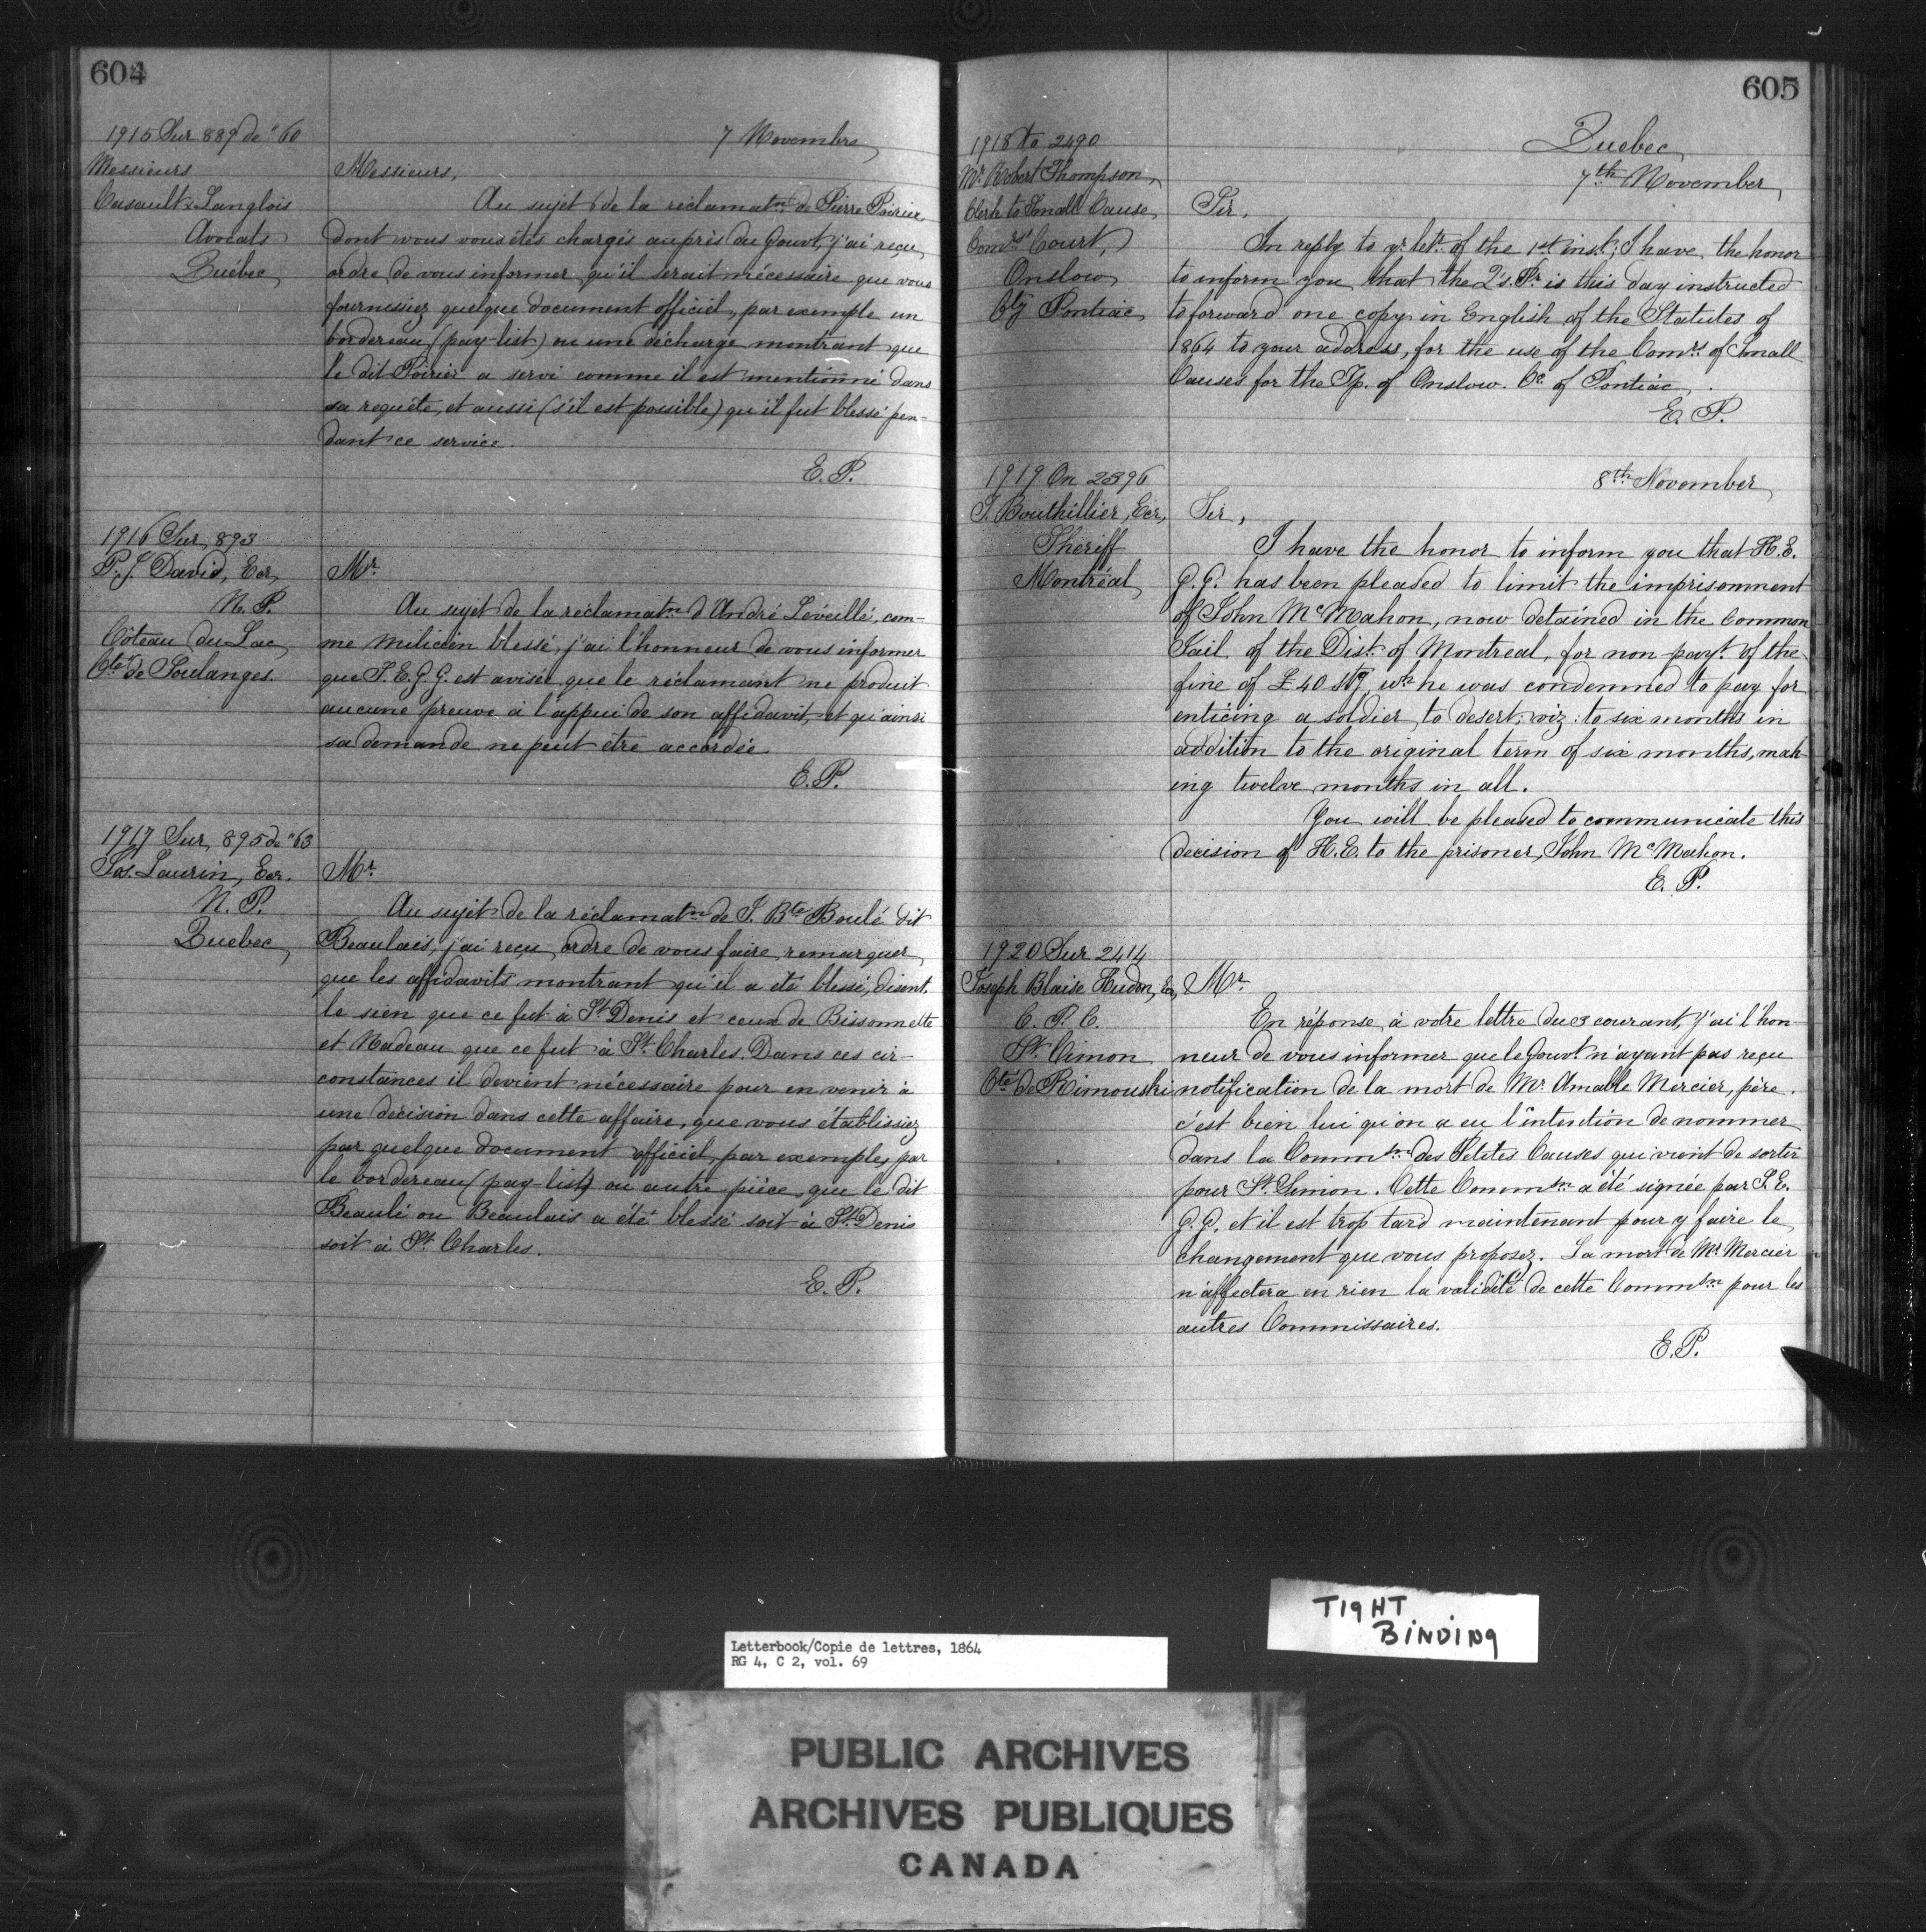 604
1915 Sur 889 de "60
7 Novembre
Messieurs
Casault & Langlois
Avocats
Québec
Messieurs,
Au sujet de la réclamatn de Pierre Poirier
dont vous vous êtes chargés auprès du Gouvt, j'ai reçu
ordre de vous informer qu'il serait nécessaire que vous
fournissiez quelque document officiel, par exemple un
bordereau (pay-list) ou une décharge montrant que
le dit Poirier a servi comme il est mentionné dans
sa requête, et aussi (s'il est possible) qu'il fut blessé pen-
dant ce service.
E. P.
1916 Sur 893
P. J. David, Ecr,
N. P.
Côteau du Lac
Cté de Soulanges.
Mr.
Au sujet de la réclamatn d'André Léveillé, com-
me milicien blessé, j'ai l'honneur de vous informer
que S. E. G G. est avisée que le réclamant ne produit
aucune preuve à l'appui de son affidavit, et qu'ainsi
sa demande ne peut être accordée.
E. P.
1917 Sur 895 de "63
Jos. Laurin, Ecr.
N. P.
Quebec
Mr.
Au sujet de la réclamatn de J. Bte Boulé dit
Beaulais, j'ai reçu ordre de vous faire remarquer
que les affidavits montrant qu'il a été blessé, disent.
le sien que ce fut à St Denis et ceux de Bissonnette
et Nadeau que ce fut à St. Charles. Dans ces cir-
constances il devient nécessaire pour en venir à
une décision dans cette affaire, que vous établissiez
par quelque document officiel, par exemple, par
le bordereau (pay-list) ou autre pièce, que le dit
Beaulé ou Beaulais a été blessé soit à St. Denis
soit à St. Charles.
E. P.
605
Quebec
7th November
1918 To 2490
Mr. Robert Thompson,
Clerk to Small Cause
Comrs' Court,
Onslow
Cty Pontiac
Sir,
In reply to yr. lettr. of the 1st inst; I have the honor
to inform you that the Q's. Pr. is this day instructed
to forward one copy in English of the Statutes of
1864 to your address, for the use of the Comrs of Small
Causes for the Tp. of Onslow. Co. of Pontiac.
E. P.
1919 On 2396
8th November
T. Bouthillier, Ecr,
Sheriff
Montréal
Sir,
I have the honor to inform you that H. E.
G. G. has been pleased to limit the imprisonment
of John McMahon, now detained in the Common
Jail of the Dist. of Montreal, for non-payt. of the
fine of £40 stg, wh he was condemned to pay for
enticing a soldier to desert: viz: to six months in
addition to the original term of six months, mak
ing twelve months in all.
You will be pleased to communicate this
decision of H. E. to the prisoner, John McMahon.
E. P.
1920 Sur 2414
Joseph Blaise Hudon, Ecr,
C. P. C.
St. Simon
Cté de Rimouski
Mr.
En réponse à votre lettre du 3 courant, j'ai l'hon
neur de vous informer que le Gouvt. n'ayant pas reçu
notification de la mort de Mr. Amable Mercier, père.
c'est bien lui qu'on a eu l'intention de nommer
dans la Commsn des Petites Causes qui vient de sortir
pour St. Simon. Cette Commsn a été signée par S. E.
G. G. et il est trop tard maintenant pour y faire le
changement que vous proposez. La mort de Mr. Mercier
n'affectera en rien la validité de cette Commsn pour les
autres Commissaires.
E. P.
TIGHT
BINDING
Letterbook/Copie de lettres, 1864
RG 4, C 2, vol. 69
PUBLIC ARCHIVES
ARCHIVES PUBLIQUES
CANADA